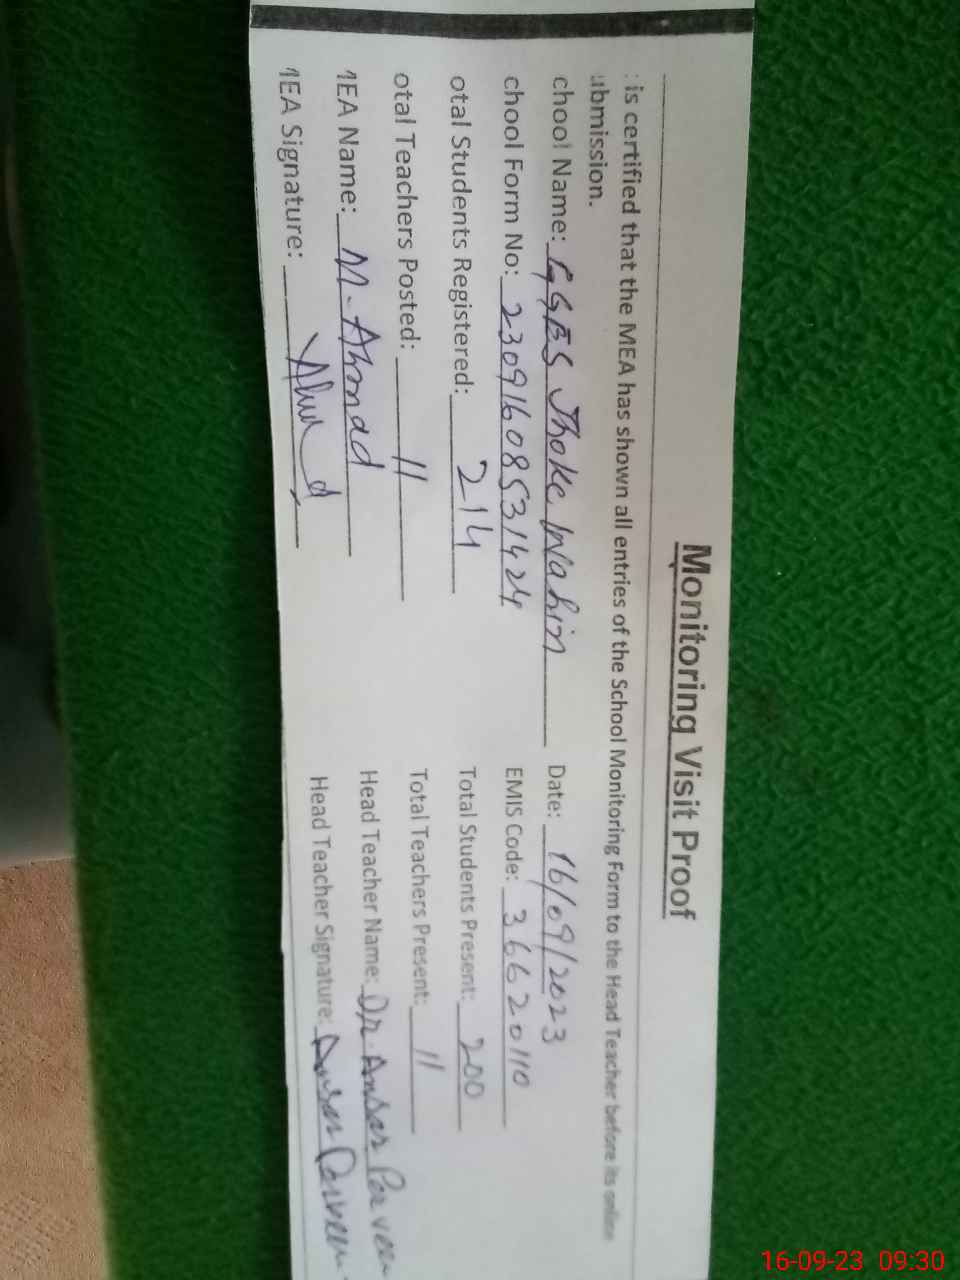 Monitoring Visit Proof
is certified that the MEA has shown all entries of the School Monitoring Form to the Head Teacher before its online
ubmission.
chool Name: GGES Jhoke Wahin Date: 16/09/2023
chool Form No: 23091608531424 EMIS Code: 36620110
otal Students Registered: 214 Total Students Present: 200
otal Teachers Posted: 11 Total Teachers Present: 11
MEA Name: M. Ahmad Head Teacher Name: Dr. Ansar Parveen
MEA Signature: Head Teacher Signature: Ansar Parveen
16-09-23 09:30